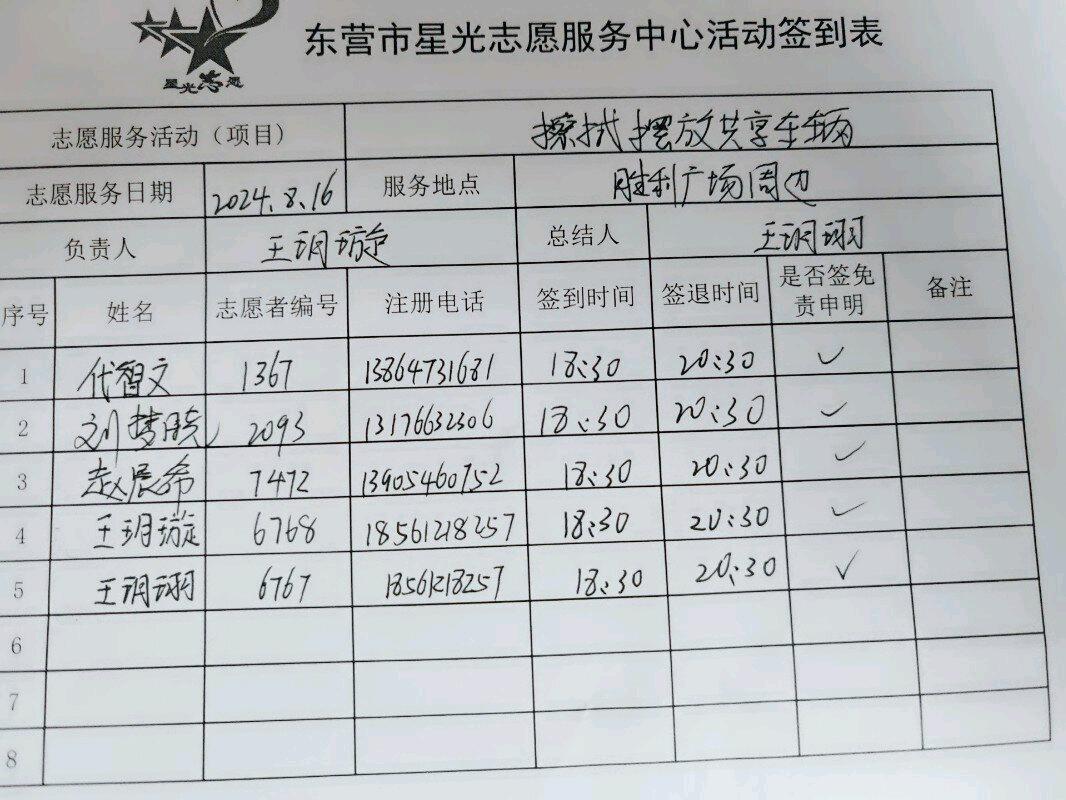 东营市星光志愿服务中心活动签到表
星光志愿
志愿服务活动（项目） 擦拭摆放共享车辆
志愿服务日期 2024.8.16 服务地点 胜利广场周边
负责人 王玥璇 总结人 王玥翊
序号 姓名 志愿者编号 注册电话 签到时间 签退时间 是否签免责申明 备注
1 代智文 1367 13864731681 18:30 20:30 ✓
2 刘梦晓 2093 13176632306 18:30 20:30 ✓
3 赵晨希 7472 13905460752 18:30 20:30 ✓
4 王玥璇 6768 18561218257 18:30 20:30 ✓
5 王玥翊 6767 18561218257 18:30 20:30 ✓
6
7
8